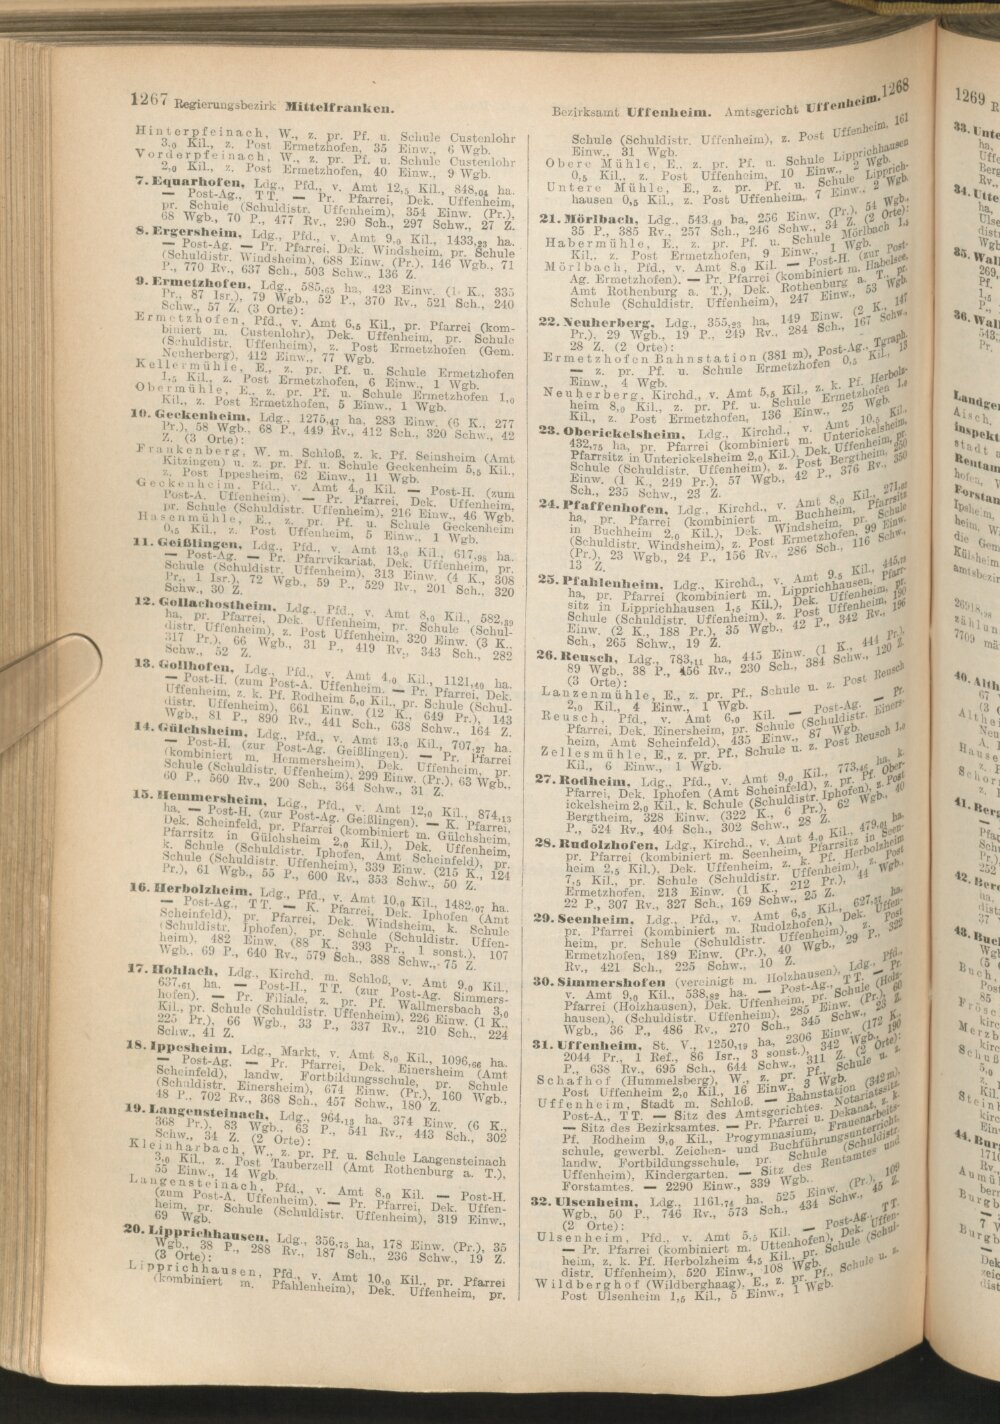 1267 Regierungsbezirk Mittelfranken.
Hinterpfeinach, W., z. pr. Pf. u. Schule Custenlohr
3,0 Kil., z. Post Ermetzhofen, 35 Einw., 6 Wgb.
Vorderpfeinach, W., z. pr. Pf. u. Schule Custenlohr
2,0 Kil., z. Post Ermetzhofen, 40 Einw., 9 Wgb.
7. Equarhofen, Ldg., Pfd., v. Amt 12,5 Kil., 848,04 ha.
— Post-Ag., TT. — Pr. Pfarrei, Dek. Uffenheim,
pr. Schule (Schuldistr. Uffenheim), 354 Einw. (Pr.),
68 Wgb., 70 P., 477 Rv., 290 Sch., 297 Schw., 27 Z.
8. Ergersheim, Ldg., Pfd., v. Amt 9,0 Kil., 1433,23 ha.
— Post-Ag. — Pr. Pfarrei, Dek. Windsheim, pr. Schule
(Schuldistr. Windsheim), 688 Einw. (Pr.), 146 Wgb., 71
P., 770 Rv., 637 Sch., 503 Schw., 136 Z.
9. Ermetzhofen, Ldg., 585,65 ha, 423 Einw. (1 K., 335
Pr., 87 Isr.), 79 Wgb., 52 P., 370 Rv., 521 Sch., 240
Schw., 57 Z. (3 Orte):
Ermetzhofen, Pfd., v. Amt 6,5 Kil., pr. Pfarrei (kom-
biniert m. Custenlohr), Dek. Uffenheim, pr. Schule
(Schuldistr. Uffenheim), z. Post Ermetzhofen (Gem.
Neuherberg), 412 Einw., 77 Wgb.
Kellermühle, E., z. pr. Pf. u. Schule Ermetzhofen
1,5 Kil., z. Post Ermetzhofen, 6 Einw., 1 Wgb.
Obermühle, E., z. pr. Pf. u. Schule Ermetzhofen 1,0
Kil., z. Post Ermetzhofen, 5 Einw., 1 Wgb.
10. Geckenheim, Ldg., 1275,47 ha, 283 Einw. (6 K., 277
Pr.), 58 Wgb., 68 P., 449 Rv., 412 Sch., 320 Schw., 42
Z. (3 Orte):
Frankenberg, W. m. Schloß, z. k. Pf. Seinsheim (Amt
Kitzingen) u. z. pr. Pf. u. Schule Geckenheim 5,5 Kil.,
z. Post Ippesheim, 62 Einw., 11 Wgb.
Geckenheim, Pfd., v. Amt 4,0 Kil. — Post-H. (zum
Post-A. Uffenheim). — Pr. Pfarrei, Dek. Uffenheim,
pr. Schule (Schuldistr. Uffenheim), 216 Einw., 46 Wgb.
Hasenmühle, E., z. pr. Pf. u. Schule Geckenheim
0,5 Kil., z. Post Uffenheim, 5 Einw., 1 Wgb.
11. Geißlingen, Ldg., Pfd., v. Amt 13,0 Kil., 617,98 ha.
— Post-Ag. — Pr. Pfarrvikariat, Dek. Uffenheim, pr.
Schule (Schuldistr. Uffenheim), 313 Einw. (4 K., 308
Pr., 1 Isr.), 72 Wgb., 59 P., 529 Rv., 201 Sch., 320
Schw., 30 Z.
12. Gollachostheim, Ldg., Pfd., v. Amt 8,0 Kil., 582,39
ha, pr. Pfarrei, Dek. Uffenheim, pr. Schule (Schul-
distr. Uffenheim), z. Post Uffenheim, 320 Einw. (3 K.,
317 Pr.), 66 Wgb., 31 P., 419 Rv., 343 Sch., 282
Schw., 52 Z.
13. Gollhofen, Ldg., Pfd., v. Amt 4,0 Kil., 1121,40 ha.
— Post-H. (zum Post-A. Uffenheim. — Pr. Pfarrei, Dek.
Uffenheim, z. k. Pf. Rodheim 5,0 Kil., pr. Schule (Schul-
distr. Uffenheim), 661 Einw. (12 K., 649 Pr.), 143
Wgb., 81 P., 890 Rv., 441 Sch., 638 Schw., 164 Z.
14. Gülchsheim, Ldg., Pfd., v. Amt 13,0 Kil., 707,27 ha.
— Post-H. (zur Post-Ag. Geißlingen). — Pr. Pfarrei
(kombiniert m. Hemmersheim), Dek. Uffenheim, pr.
Schule (Schuldistr. Uffenheim), 299 Einw. (Pr.), 63 Wgb.,
60 P., 560 Rv., 200 Sch., 364 Schw., 31 Z.
15. Hemmersheim, Ldg., Pfd., v. Amt 12,0 Kil., 874,13
ha. — Post-H. (zur Post-Ag. Geißlingen). — K. Pfarrei,
Dek. Scheinfeld, pr. Pfarrei (kombiniert m. Gülchsheim,
Pfarrsitz in Gülchsheim 2,0 Kil.), Dek. Uffenheim,
k. Schule (Schuldistr. Iphofen, Amt Scheinfeld), pr.
Schule (Schuldistr. Uffenheim), 339 Einw. (215 K., 124
Pr.), 61 Wgb., 55 P., 600 Rv., 353 Schw., 50 Z.
16. Herbolzheim, Ldg., Pfd., v. Amt 10,0 Kil., 1482,07 ha.
— Post-Ag., TT. — K. Pfarrei, Dek. Iphofen (Amt
Scheinfeld), pr. Pfarrei, Dek. Windsheim, k. Schule
(Schuldistr. Iphofen), pr. Schule (Schuldistr. Uffen-
heim), 482 Einw. (88 K., 393 Pr., 1 sonst.), 107
Wgb., 69 P., 640 Rv., 579 Sch., 388 Schw., 75 Z.
17. Hohlach, Ldg., Kirchd. m. Schloß, v. Amt 9,0 Kil.,
637,61 ha. — Post-H., TT. (zur Post-Ag. Simmers-
hofen). — Pr. Filiale, z. pr. Pf. Wallmersbach 3,0
Kil., pr. Schule (Schuldistr. Uffenheim), 226 Einw. (1 K.,
225 Pr.), 66 Wgb., 33 P., 337 Rv., 210 Sch., 224
Schw., 41 Z.
18. Ippesheim, Ldg., Markt, v. Amt 8,0 Kil., 1096,66 ha.
— Post-Ag. — Pr. Pfarrei, Dek. Einersheim (Amt
Scheinfeld), landw. Fortbildungsschule, pr. Schule
(Schuldistr. Einersheim), 674 Einw. (Pr.), 160 Wgb.,
48 P., 702 Rv., 368 Sch., 457 Schw., 180 Z.
19. Langensteinach, Ldg., 964,13 ha, 374 Einw. (6 K.,
368 Pr.), 83 Wgb., 63 P., 541 Rv., 443 Sch., 302
Schw., 34 Z. (2 Orte):
Kleinharbach, W., z. pr. Pf. u. Schule Langensteinach
3,0 Kil., z. Post Tauberzell (Amt Rothenburg a. T.),
55 Einw., 14 Wgb.
Langensteinach, Pfd., v. Amt 8,0 Kil. — Post-H.
(zum Post-A. Uffenheim). — Pr. Pfarrei, Dek. Uffen-
heim, pr. Schule (Schuldistr. Uffenheim), 319 Einw.,
69 Wgb.
20. Lipprichhausen, Ldg., 356,73 ha, 178 Einw. (Pr.), 35
Wgb., 38 P., 288 Rv., 187 Sch., 236 Schw., 19 Z.
(3 Orte):
Lipprichhausen, Pfd., v. Amt 10,0 Kil., pr. Pfarrei
(kombiniert m. Pfahlenheim), Dek. Uffenheim, pr.
Bezirksamt Uffenheim. Amtsgericht Uffenheim. 1268
Schule (Schuldistr. Uffenheim), z. Post Uffenheim, 161
Einw., 31 Wgb.
Obere Mühle, E., z. pr. Pf. u. Schule Lipprichhausen
0,5 Kil., z. Post Uffenheim, 10 Einw., 2 Wgb.
Untere Mühle, E., z. pr. Pf. u. Schule Lipprich-
hausen 0,5 Kil., z. Post Uffenheim, 7 Einw., 2 Wgb.
21. Mörlbach, Ldg., 543,40 ha, 256 Einw. (Pr.), 54 Wgb.,
35 P., 385 Rv., 257 Sch., 246 Schw., 34 Z. (2 Orte):
Habermühle, E., z. pr. Pf. u. Schule Mörlbach 1,5
Kil., z. Post Ermetzhofen, 9 Einw., 1 Wgb.
Mörlbach, Pfd., v. Amt 8,0 Kil. — Post-H. (zur Post-
Ag. Ermetzhofen). — Pr. Pfarrei (kombiniert m. Habelsee,
Amt Rothenburg a. T.), Dek. Rothenburg a. T., pr.
Schule (Schuldistr. Uffenheim), 247 Einw., 53 Wgb.
22. Neuherberg, Ldg., 355,23 ha, 149 Einw. (2 K., 147
Pr.), 29 Wgb., 19 P., 249 Rv., 284 Sch., 167 Schw.,
28 Z. (2 Orte):
Ermetzhofen Bahnstation (381 m), Post-Ag., Tgraph.
— z. pr. Pf. u. Schule Ermetzhofen 0,5 Kil., 13
Einw., 4 Wgb.
Neuherberg, Kirchd., v. Amt 5,5 Kil., z. k. Pf. Herbolz-
heim 8,0 Kil., z. pr. Pf. u. Schule Ermetzhofen 1,0
Kil., z. Post Ermetzhofen, 136 Einw., 25 Wgb.
23. Oberickelsheim, Ldg., Kirchd., v. Amt 10,5 Kil.,
432,75 ha, pr. Pfarrei (kombiniert m. Unterickelsheim,
Pfarrsitz in Unterickelsheim 2,0 Kil.), Dek. Uffenheim, pr.
Schule (Schuldistr. Uffenheim), z. Post Bergtheim, 250
Einw. (1 K., 249 Pr.), 57 Wgb., 42 P., 376 Rv., 350
Sch., 235 Schw., 23 Z.
24. Pfaffenhofen, Ldg., Kirchd., v. Amt 8,0 Kil.,
ha, pr. Pfarrei (kombiniert m. Buchheim, Pfarrsitz
in Buchheim 2,0 Kil.), Dek. Windsheim, pr. Schule
(Schuldistr. Windsheim), z. Post Ermetzhofen, 99 Einw.
(Pr.), 23 Wgb., 24 P., 156 Rv., 286 Sch., 116 Schw.,
13 Z.
25. Pfahlenheim, Ldg., Kirchd., v. Amt 9,5 Kil.,
ha, pr. Pfarrei (kombiniert m. Lipprichhausen, Pfarr-
sitz in Lipprichhausen 1,5 Kil.), Dek. Uffenheim, pr.
Schule (Schuldistr. Uffenheim), z. Post Uffenheim, 190
Einw. (2 K., 188 Pr.), 35 Wgb., 42 P., 342 Rv., 196
Sch., 265 Schw., 19 Z.
26. Reusch, Ldg., 783,11 ha, 445 Einw. (1 K., 444 Pr.),
89 Wgb., 38 P., 456 Rv., 230 Sch., 384 Schw., 120 Z.
(3 Orte):
Lanzenmühle, E., z. pr. Pf., Schule u. z. Post Reusch
2,0 Kil., 4 Einw., 1 Wgb.
Reusch, Pfd., v. Amt 6,0 Kil. — Post-Ag. — Pr.
Pfarrei, Dek. Einersheim, pr. Schule (Schuldistr. Einers-
heim, Amt Scheinfeld), 435 Einw., 87 Wgb.
Zellesmühle, E., z. pr. Pf., Schule u. z. Post Reusch 1,0
Kil., 6 Einw., 1 Wgb.
27. Rodheim, Ldg., Pfd., v. Amt 9,0 Kil., 773,46 ha, k.
Pfarrei, Dek. Iphofen (Amt Scheinfeld), z. pr. Pf. Ober-
ickelsheim 2,0 Kil., k. Schule (Schuldistr. Iphofen), z. Post
Bergtheim, 328 Einw. (322 K., 6 Pr.), 62 Wgb., 40
P., 524 Rv., 404 Sch., 302 Schw., 28 Z.
28. Rudolzhofen, Ldg., Kirchd., v. Amt 4,0 Kil., 479,01 ha,
pr. Pfarrei (kombiniert m. Seenheim, Pfarrsitz in Seen-
heim 2,5 Kil.), Dek. Uffenheim, z. k. Pf. Herbolzheim
7,5 Kil., pr. Schule (Schuldistr. Uffenheim), z. Post
Ermetzhofen, 213 Einw. (1 K., 212 Pr.), 44 Wgb.,
22 P., 307 Rv., 327 Sch., 169 Schw., 25 Z.
29. Seenheim, Ldg., Pfd., v. Amt 6,5 Kil., 627,51 ha,
pr. Pfarrei (kombiniert m. Rudolzhofen), Dek. Uffen-
heim, pr. Schule (Schuldistr. Uffenheim), z. Post
Ermetzhofen, 189 Einw. (Pr.), 40 Wgb., 29 P., 322
Rv., 421 Sch., 225 Schw., 10 Z.
30. Simmershofen (vereinigt m. Holzhausen), Ldg., Pfd.,
v. Amt 9,0 Kil., 538,82 ha. — Post-Ag., TT. — Pr.
Pfarrei (Holzhausen), Dek. Uffenheim, pr. Schule (Holz-
hausen), (Schuldistr. Uffenheim), 285 Einw. (Pr.), 60
Wgb., 36 P., 486 Rv., 270 Sch., 345 Schw., 23 Z.
31. Uffenheim, St. V., 1250,19 ha, 2306 Einw. (172 K.,
2044 Pr., 1 Ref., 86 Isr., 3 sonst.), 342 Wgb., 190
P., 638 Rv., 695 Sch., 644 Schw., 311 Z. (2 Orte):
Schafhof (Hummelsberg), W., z. pr. Pf., Schule u. z.
Post Uffenheim 2,0 Kil., 16 Einw., 3 Wgb.
Uffenheim, Stadt m. Schloß. — Bahnstation (342 m),
Post-A., TT. — Sitz des Amtsgerichtes. Notariatssitz.
— Sitz des Bezirksamtes. — Pr. Pfarrei u. Dekanat, z. k.
Pf. Rodheim 9,0 Kil., Progymnasium, Frauenarbeits-
schule, gewerbl. Zeichen- und Buchführungsunterricht,
landw. Fortbildungsschule, pr. Schule (Schuldistr.
Uffenheim), Kindergarten. — Sitz des Rentamtes und
Forstamtes. — 2290 Einw., 339 Wgb.
32. Ulsenheim, Ldg., 1161,74 ha, 525 Einw. (Pr.), 109
Wgb., 50 P., 746 Rv., 573 Sch., 434 Schw., 45 Z.
(2 Orte):
Ulsenheim, Pfd., v. Amt 5,5 Kil. — Post-Ag., TT.
— Pr. Pfarrei (kombiniert m. Uttenhofen), Dek. Uffen-
heim, z. k. Pf. Herbolzheim 4,5 Kil., pr. Schule (Schul-
distr. Uffenheim), 520 Einw., 108 Wgb.
Wildberghof (Wildberghaag), E., z. pr. Pf., Schule u. z.
Post Ulsenheim 1,5 Kil., 5 Einw., 1 Wgb.
1269